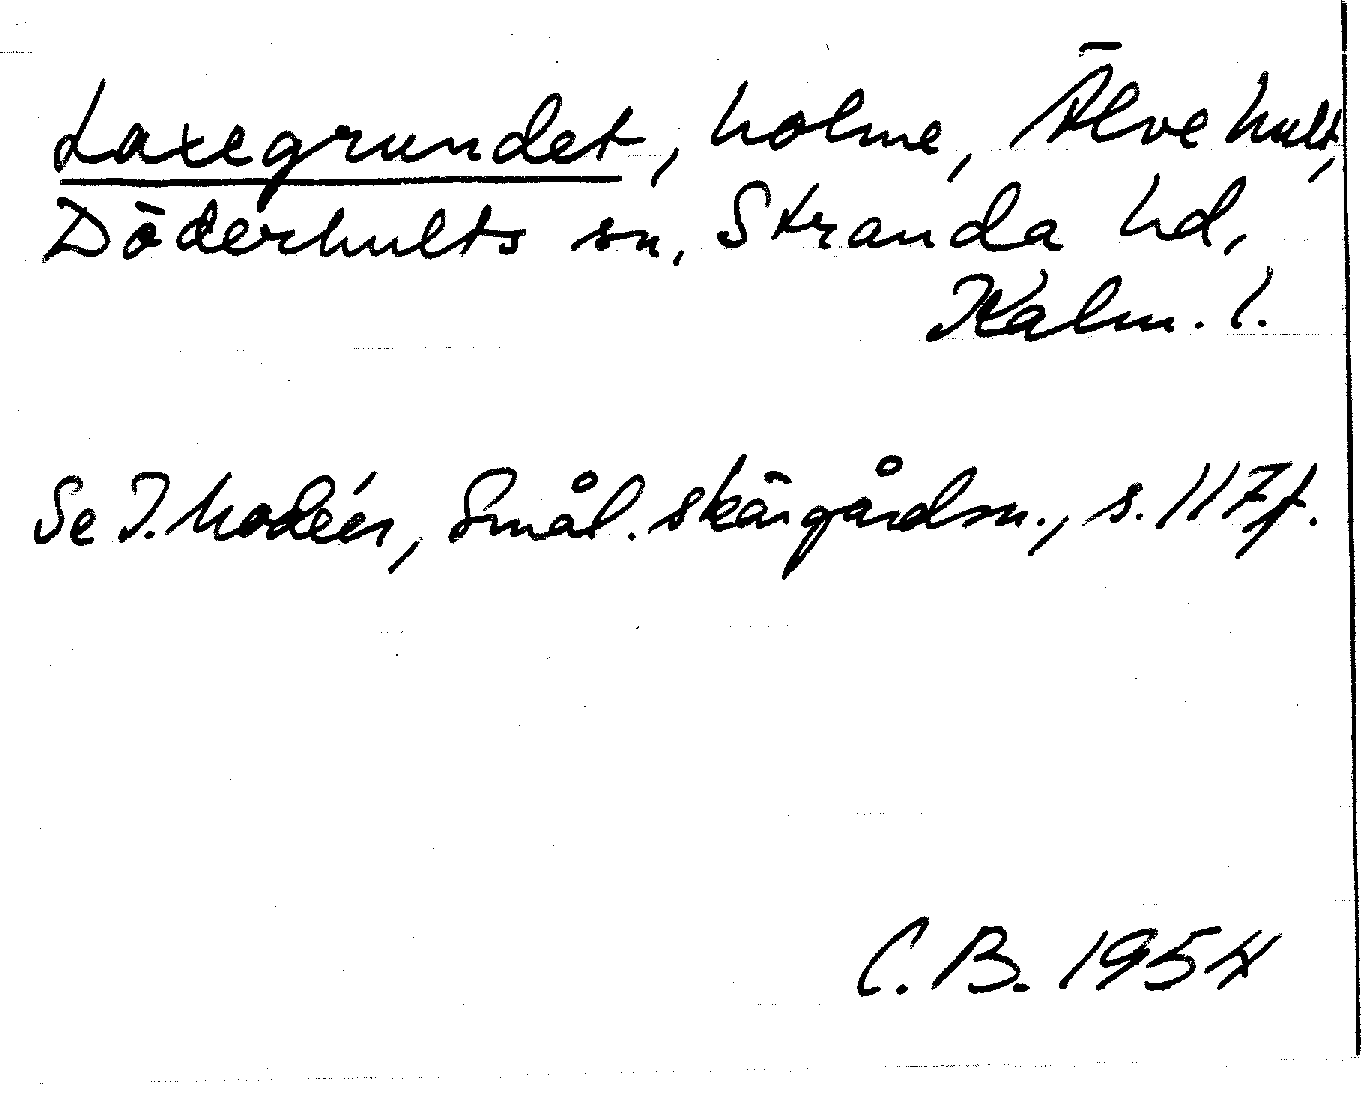 Laxegrundet, holme, Älvehult,
Döderhults sn, Stranda hd,
Kalm. l.
Se I. Modéer, Smål. skärgårdsn., s. 117f.
C. B. 1954